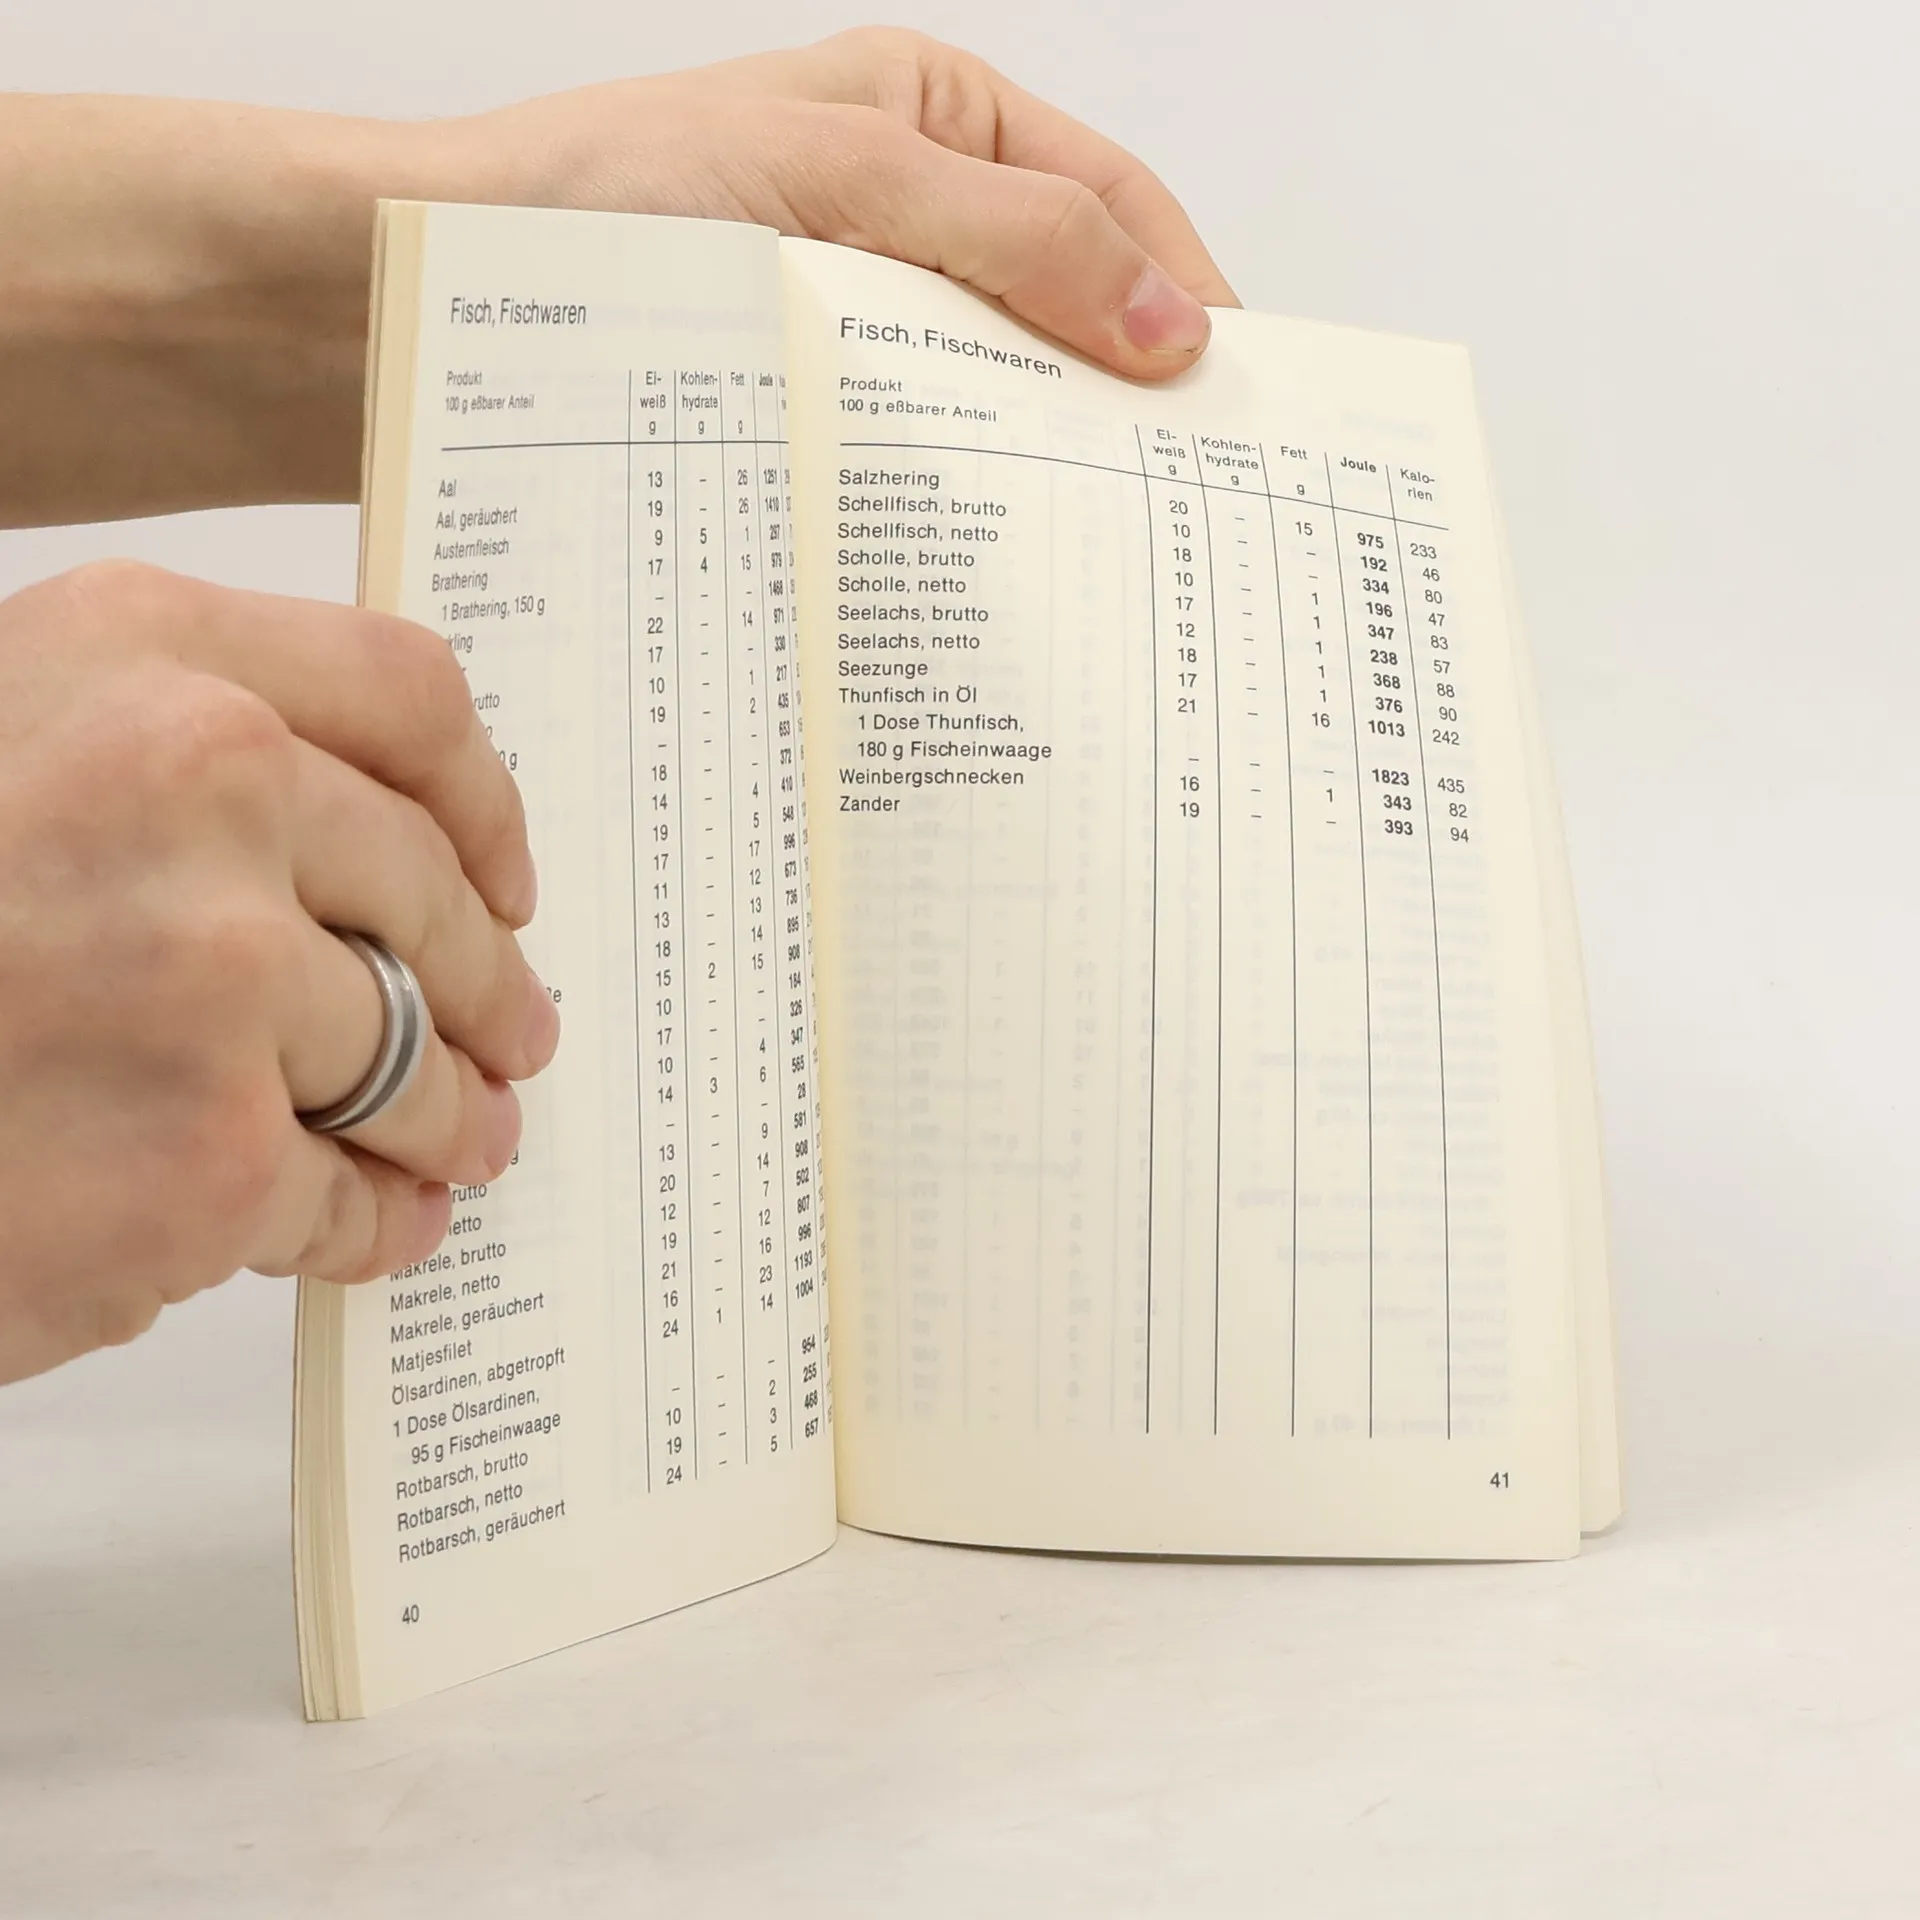 Fisch, Fischwaren
Produkt
100 g eßbarer Anteil
Ei-
weiß
g
Kohlen-
hydrate
g
Fett
g
Joule
Aal 13 – 26 1261
Aal, geräuchert 19 – 26 1410
Austernfleisch 9 5 1 297
Brathering 17 4 15 979
1 Brathering, 150 g – – – 1468
kling 22 – 14 971
17 – – 330
rutto 10 – 1 217
19 – 2 435
g – – – 653
18 – – 372
14 – 4 410
19 – 5 548
17 – 17 996
11 – 12 673
13 – 13 736
18 – 14 895
15 2 15 908
10 – – 184
17 – – 326
10 – 4 347
14 3 6 565
– – – 28
13 – 9 581
rutto 20 – 14 908
etto
Makrele, brutto 12 – 7 502
Makrele, netto 19 – 12 807
Makrele, geräuchert 21 – 16 996
Matjesfilet 16 – 23 1193
Ölsardinen, abgetropft 24 1 14 1004
1 Dose Ölsardinen,
95 g Fischeinwaage – – – 954
Rotbarsch, brutto 10 – 2 255
Rotbarsch, netto 19 – 3 468
Rotbarsch, geräuchert 24 – 5 657
40
Fisch, Fischwaren
Produkt
100 g eßbarer Anteil
Ei-
weiß
g
Kohlen-
hydrate
g
Fett
g
Joule
Kalo-
rien
Salzhering 20 – 15 975 233
Schellfisch, brutto 10 – – 192 46
Schellfisch, netto 18 – – 334 80
Scholle, brutto 10 – 1 196 47
Scholle, netto 17 – 1 347 83
Seelachs, brutto 12 – 1 238 57
Seelachs, netto 18 – 1 368 88
Seezunge 17 – 1 376 90
Thunfisch in Öl 21 – 16 1013 242
1 Dose Thunfisch,
180 g Fischeinwaage – – – 1823 435
Weinbergschnecken 16 – 1 343 82
Zander 19 – – 393 94
41